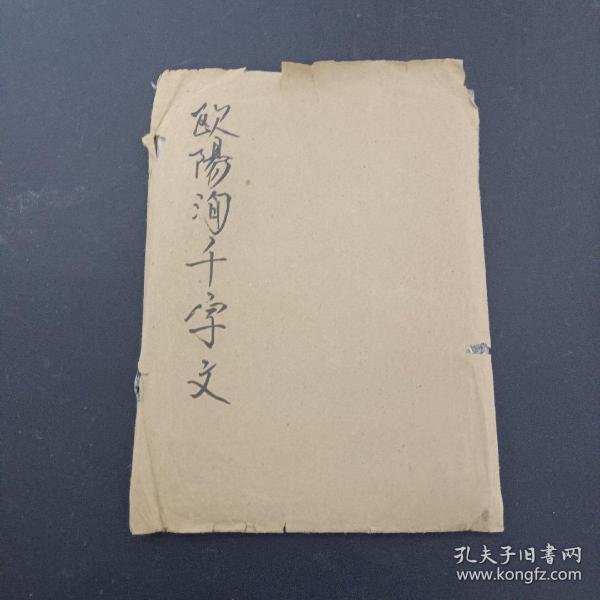 欧陽洵千字文
孔夫子旧書网
www.kongfz.com